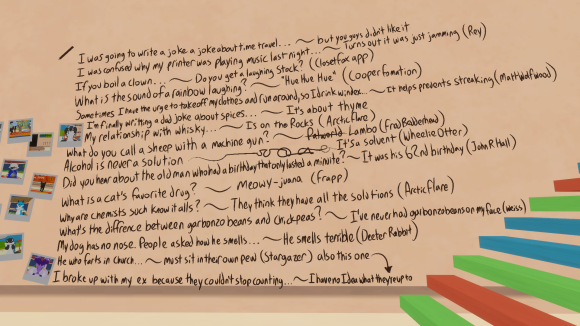 I was going to write a joke a joke about time travel... ~ but you guys didn't like it
I was confused why my printer was playing music last night... ~ Turns out it was just jamming (Rey)
If you boil a clown... ~ Do you get a laughing stock? (Closetfox app)
What is the sound of a rainbow laughing? ~ "Hue Hue Hue" (Cooperfomation)
Sometimes I have the urge to take off my clothes and run around, so I drink windex... ~ It helps prevents streaking (Mattwolfwood)
I'm finally writing a dad joke about spices... ~ It's about thyme
My relationship with whisky... ~ Is on the Rocks (Arcticflare)
What do you call a sheep with a machine gun? ~ Lambo (Fred Badderhead)
Alcohol is never a solution ~ It's a solvent (Wheelie Otter)
Did you hear about the old man who had a birthday that only lasted a minute? ~ It was his 62nd birthday (John R Hall)
What is a cat's favorite drug? ~ Meowy-juana (frapp)
Why are chemists such know it alls? ~ They think they have all the solutions (Arcticflare)
What's the diffrence between garbonzo beans and chickpeas? ~ I've never had garbonzo beans on my face (weiss)
My dog has no nose. People asked how he smells... ~ He smells terrible (Deeter Rabbit)
He who farts in church... ~ must sit in their own pew (Stargazer) also this one
I broke up with my ex because they couldn't stop counting... ~ I have no idea what they're up to